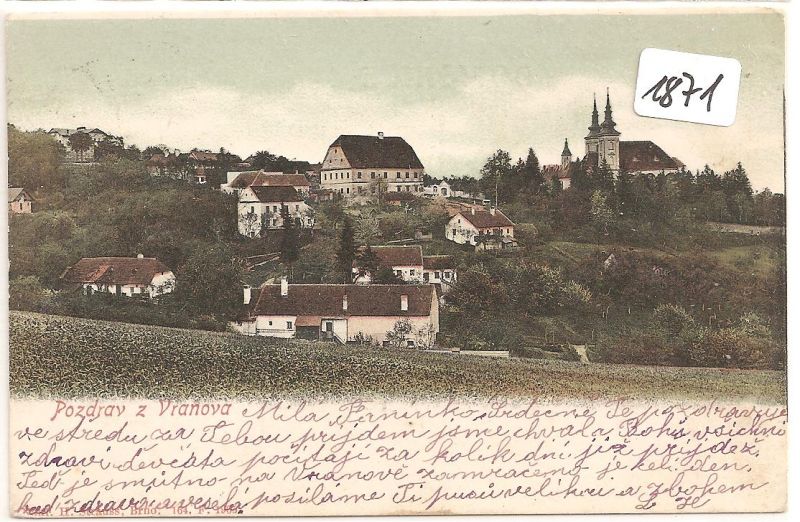 1871
Pozdrav z Vranova
Milá Fanínko, Srdečně Tě pozdravuje
ve středu za Tebou přijdem jsme chvala Bohu všichni
zdraví děvčata počítají za kolik dní již přijdeš.
Teď je smutno na Vranově zamračeno je keli den.
buď zdravá a veselá posíláme Ti pusu velikou a zbohem
H. Strauss, Brno. 164. P.